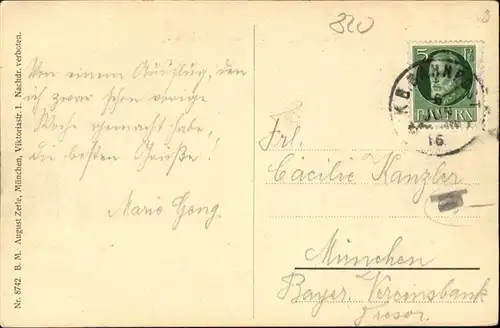 Nr. 8742 B. M. August Zerle, München, Viktoriastr. 1. Nachdr. verboten.
320
Von einem Ausflug, den
ich zwar schon vorige
Woche gemacht habe,
die besten Grüße!
Mario Gong.
5
BAYERN
K.B.
JUN
16
Frl.
Cäcilie Kanzler
München
Bayer. Vereinsbank
Tresor.